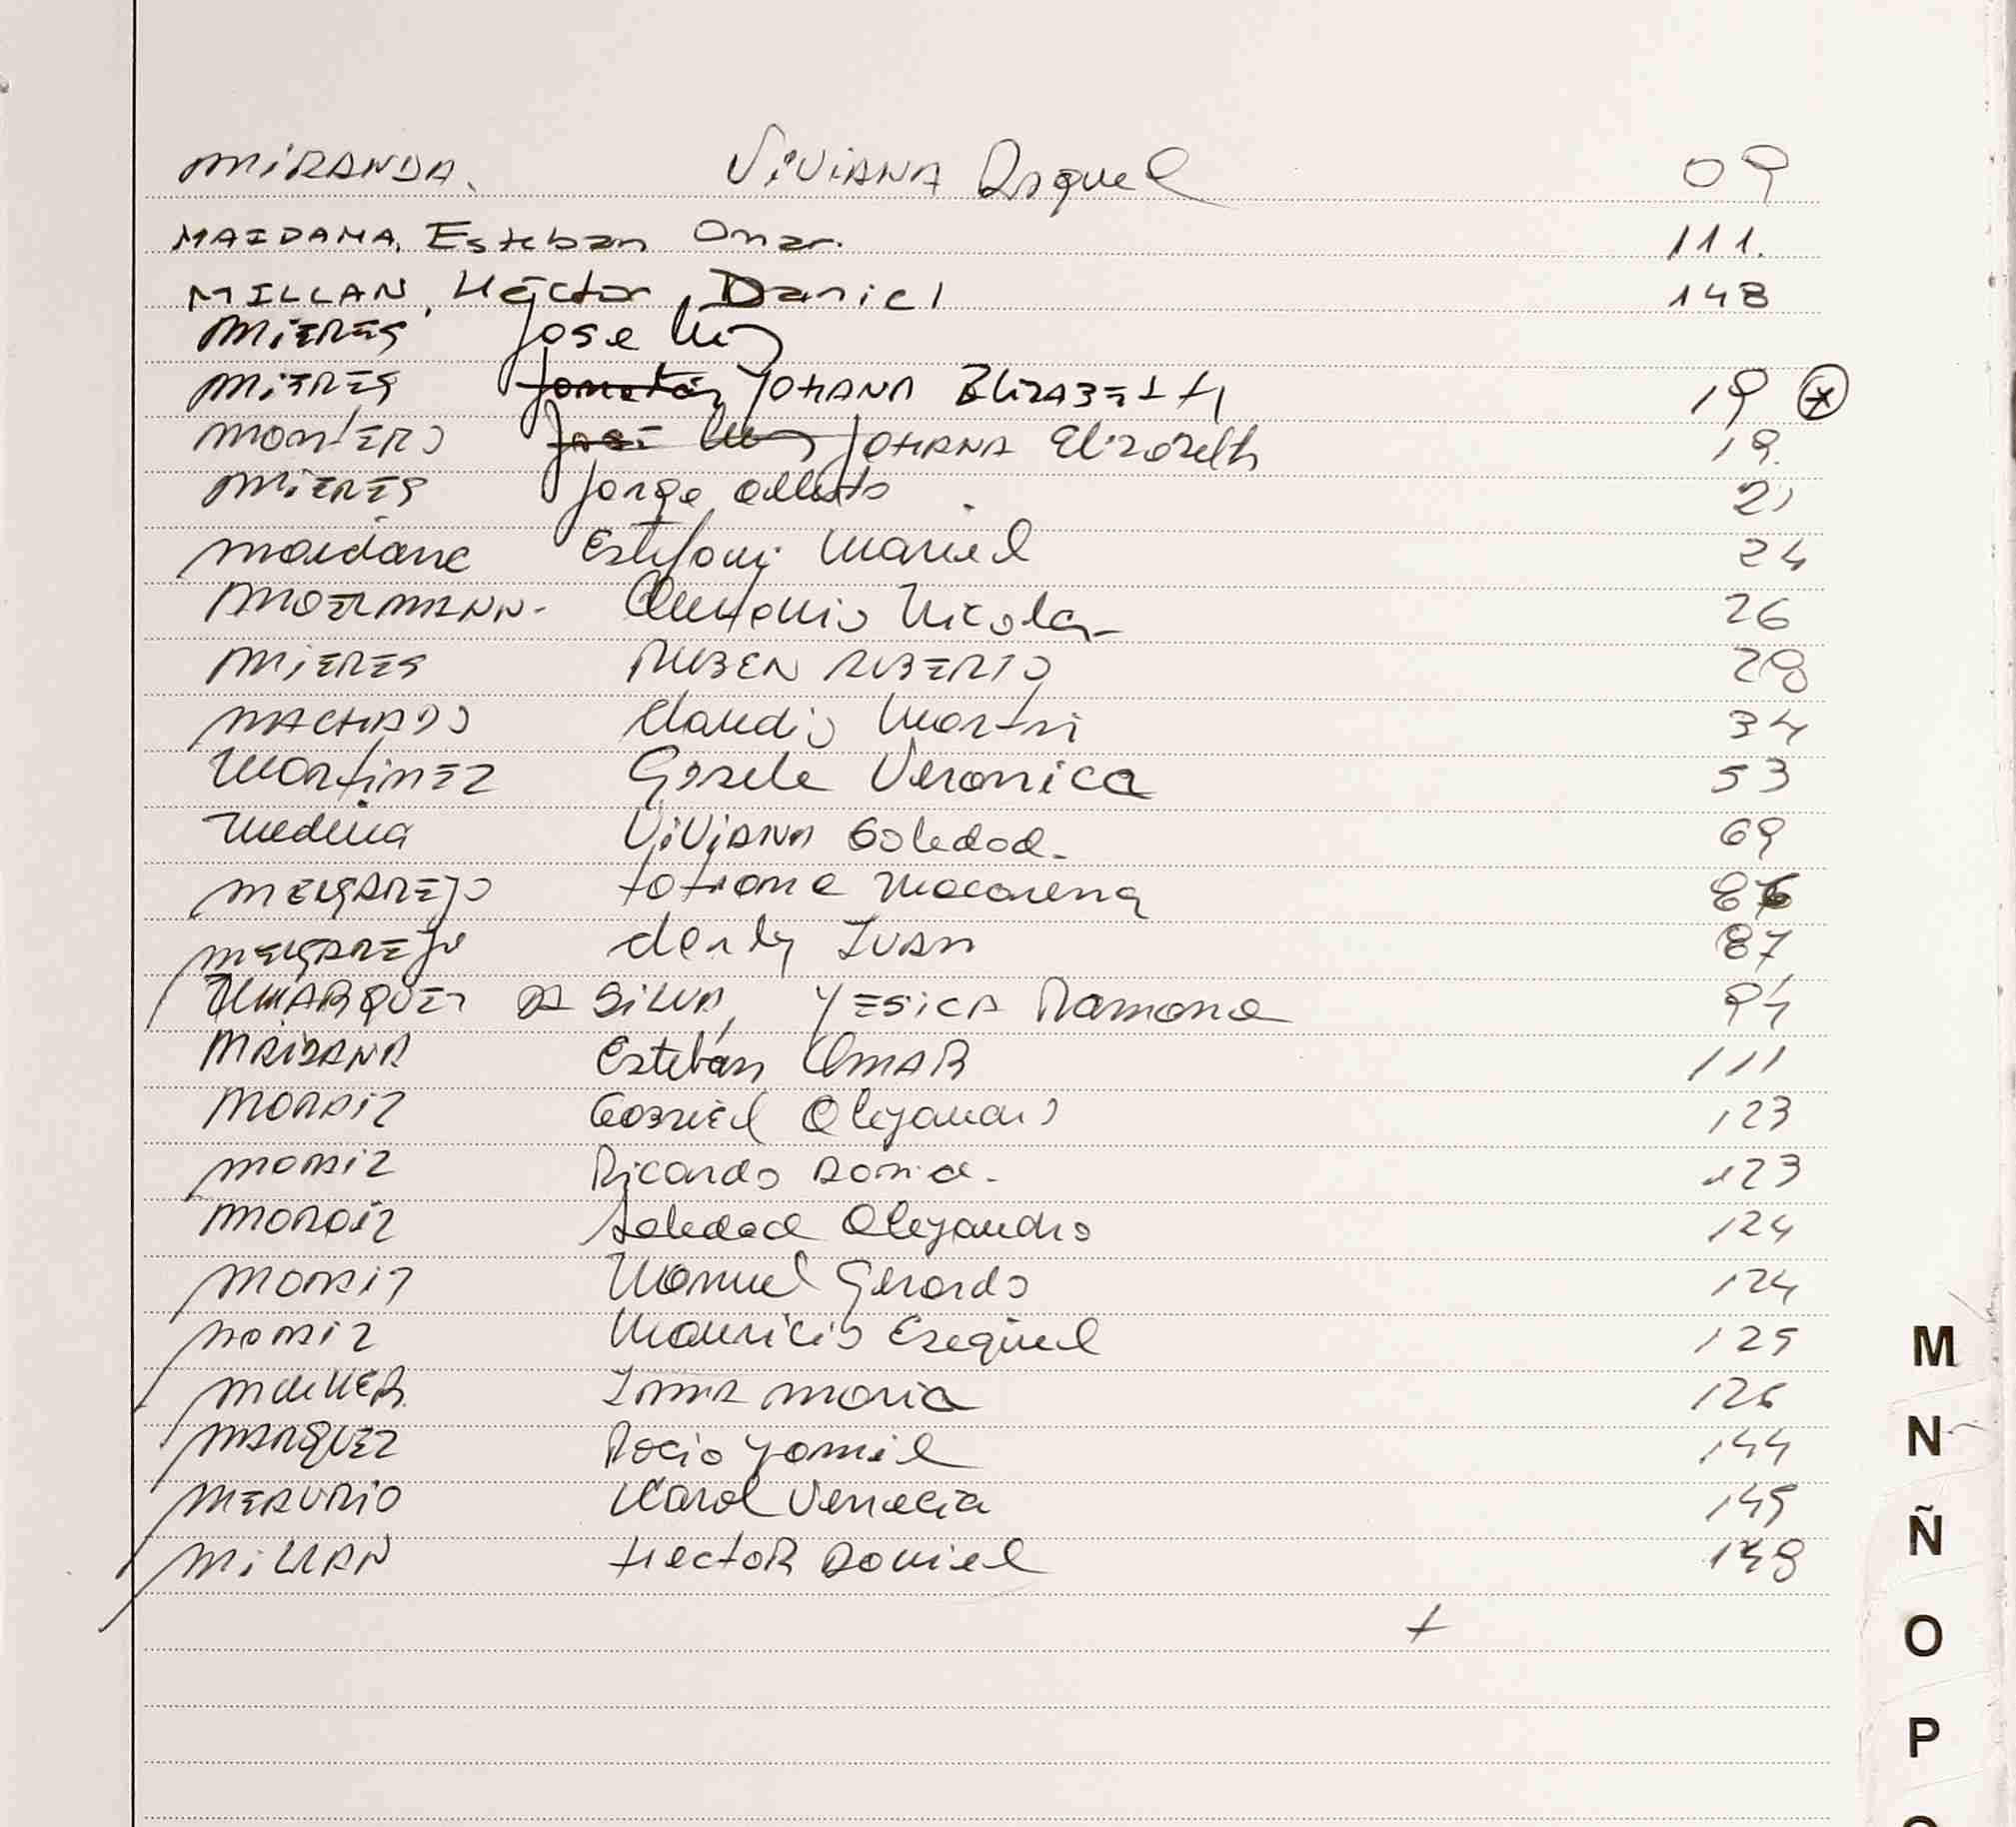 MIRANDA. VIVIANA Raquel 09
MAIDAMA, Esteban Omar. 111.
MILLAN, Héctor, Daniel 148
MIERES Jose Luis
MIERES Jonatan YOHANA ELIZABETH 19 *
MONTERO José Luis JOHANA Elizabeth 19.
MIERES Jorge Alberto 21
Maidana Estefani Mariel 24
MOERMANN- Antonio Nicolas 26
MIERES RUBEN RUBERTO 28
MACHADO Claudio Martin 34
MARTINEZ Gisele Veronica 53
Medina VIVIANA Soledad. 69
MELGAREJO Tatiana Macarena 86
MELGAREJO Derly IVAN 87
MARQUEZ DA SILVA, YESICA Ramona 94
MAIDANA Esteban OMAR 111
MORAIZ Gabriel Alejandro 123
MORAIZ Ricardo Daniel 123
MORAIZ Soledad Alejandra 124
MORAIZ Manuel Gerardo 124
MORAIZ Mauricio Ezequiel 125
MULLER IRMA MARIA 126
MARQUEZ Rocio Yamil 144
MERURIO Karol Venecia 145
MILLAN HECTOR Daniel 148
+
M
N
Ñ
O
P